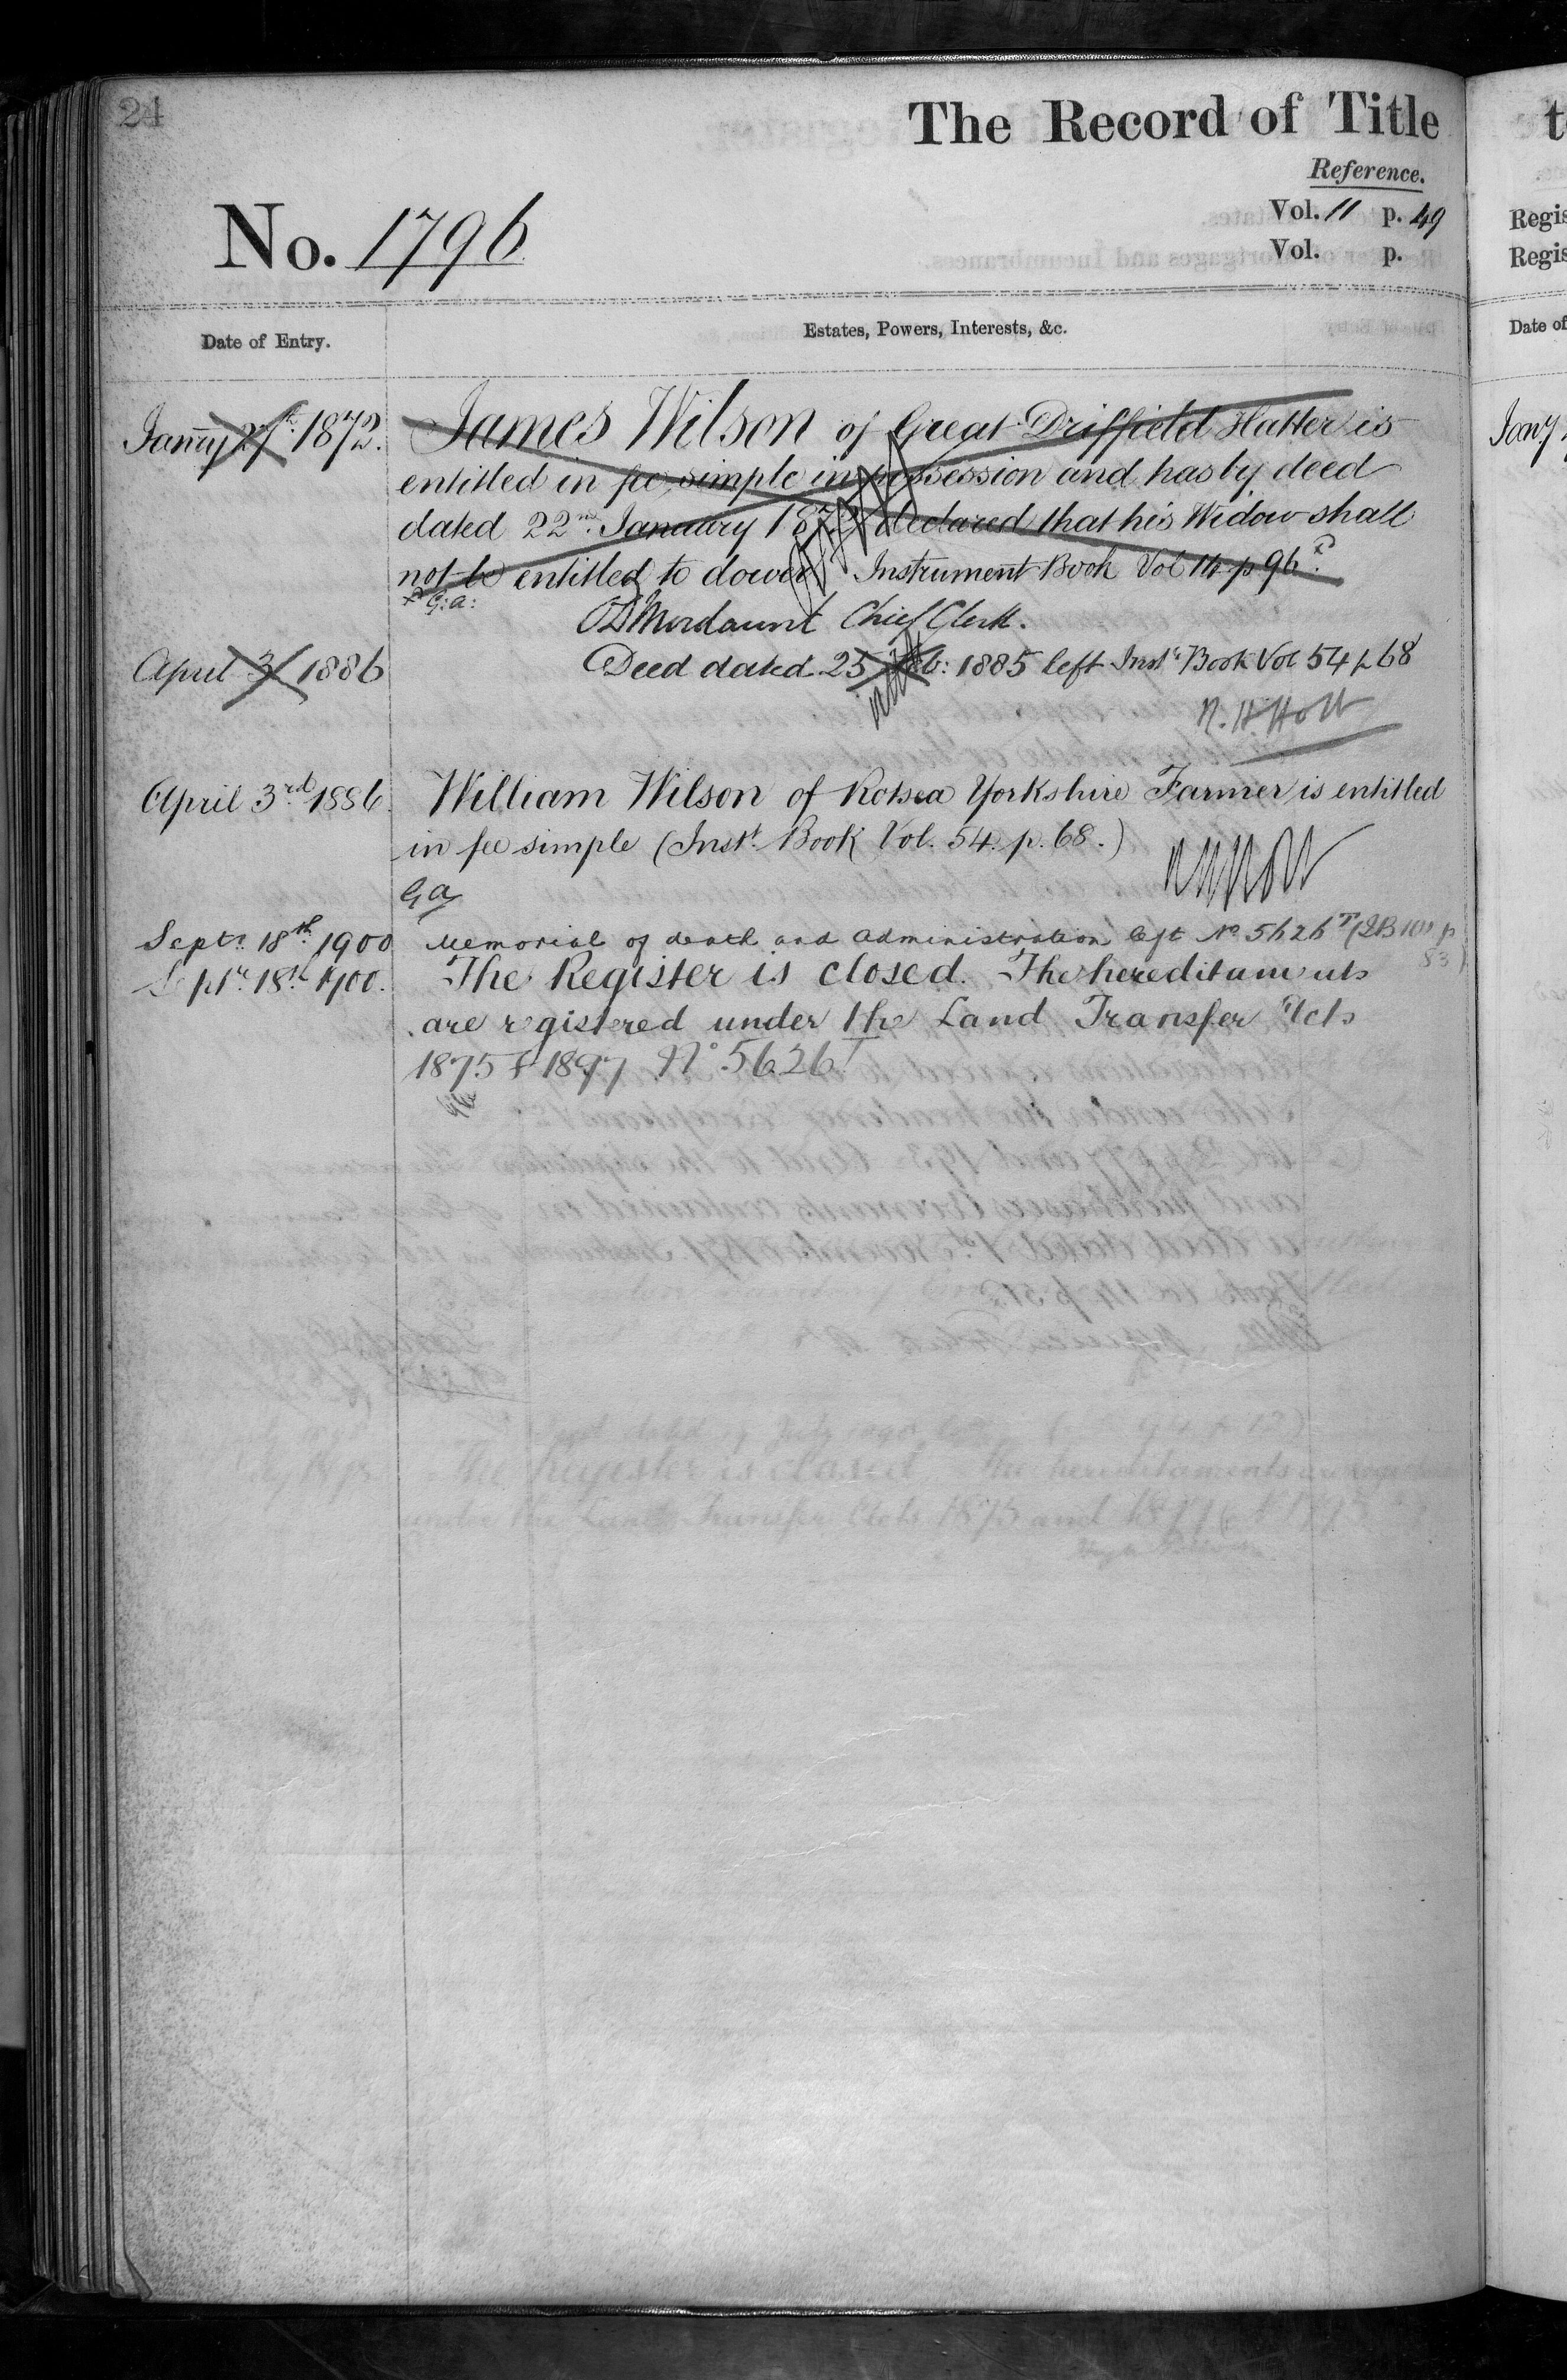 24
The Record of Title
Reference.
No. 1796
Vol. 11 p. 49
Vol. p.
Date of Entry.
Estates, Powers, Interests, &c.
Janry 27th 1872.
James Wilson of Great Driffield Hatter is
entitled in fee simple in possession and has by deed
dated 22nd January 1872 declared that his Widow shall
not be entitled to dower Instrument Book Vol 14 p 96
G: a:
Mordaunt Chief Clerk.
April 3 1886
Deed dated 25 Feb: 1885 left Inst. Book Vol 54 p 68
N. H. Holt
April 3rd 1886
William Wilson of Kotsea Yorkshire Farmer is entitled
in fee simple (Inst. Book Vol. 54. p. 68.)
N H Holt
G a
Septr. 18th 1900
Memorial of death and administration left No 5626 T (IB 101 p
83)
Septr. 18th 1900.
The Register is closed. The hereditaments
are registered under the Land Transfer Acts
1875 & 1897 No 5626 T
t
Regis
Regis
Date of
Jany